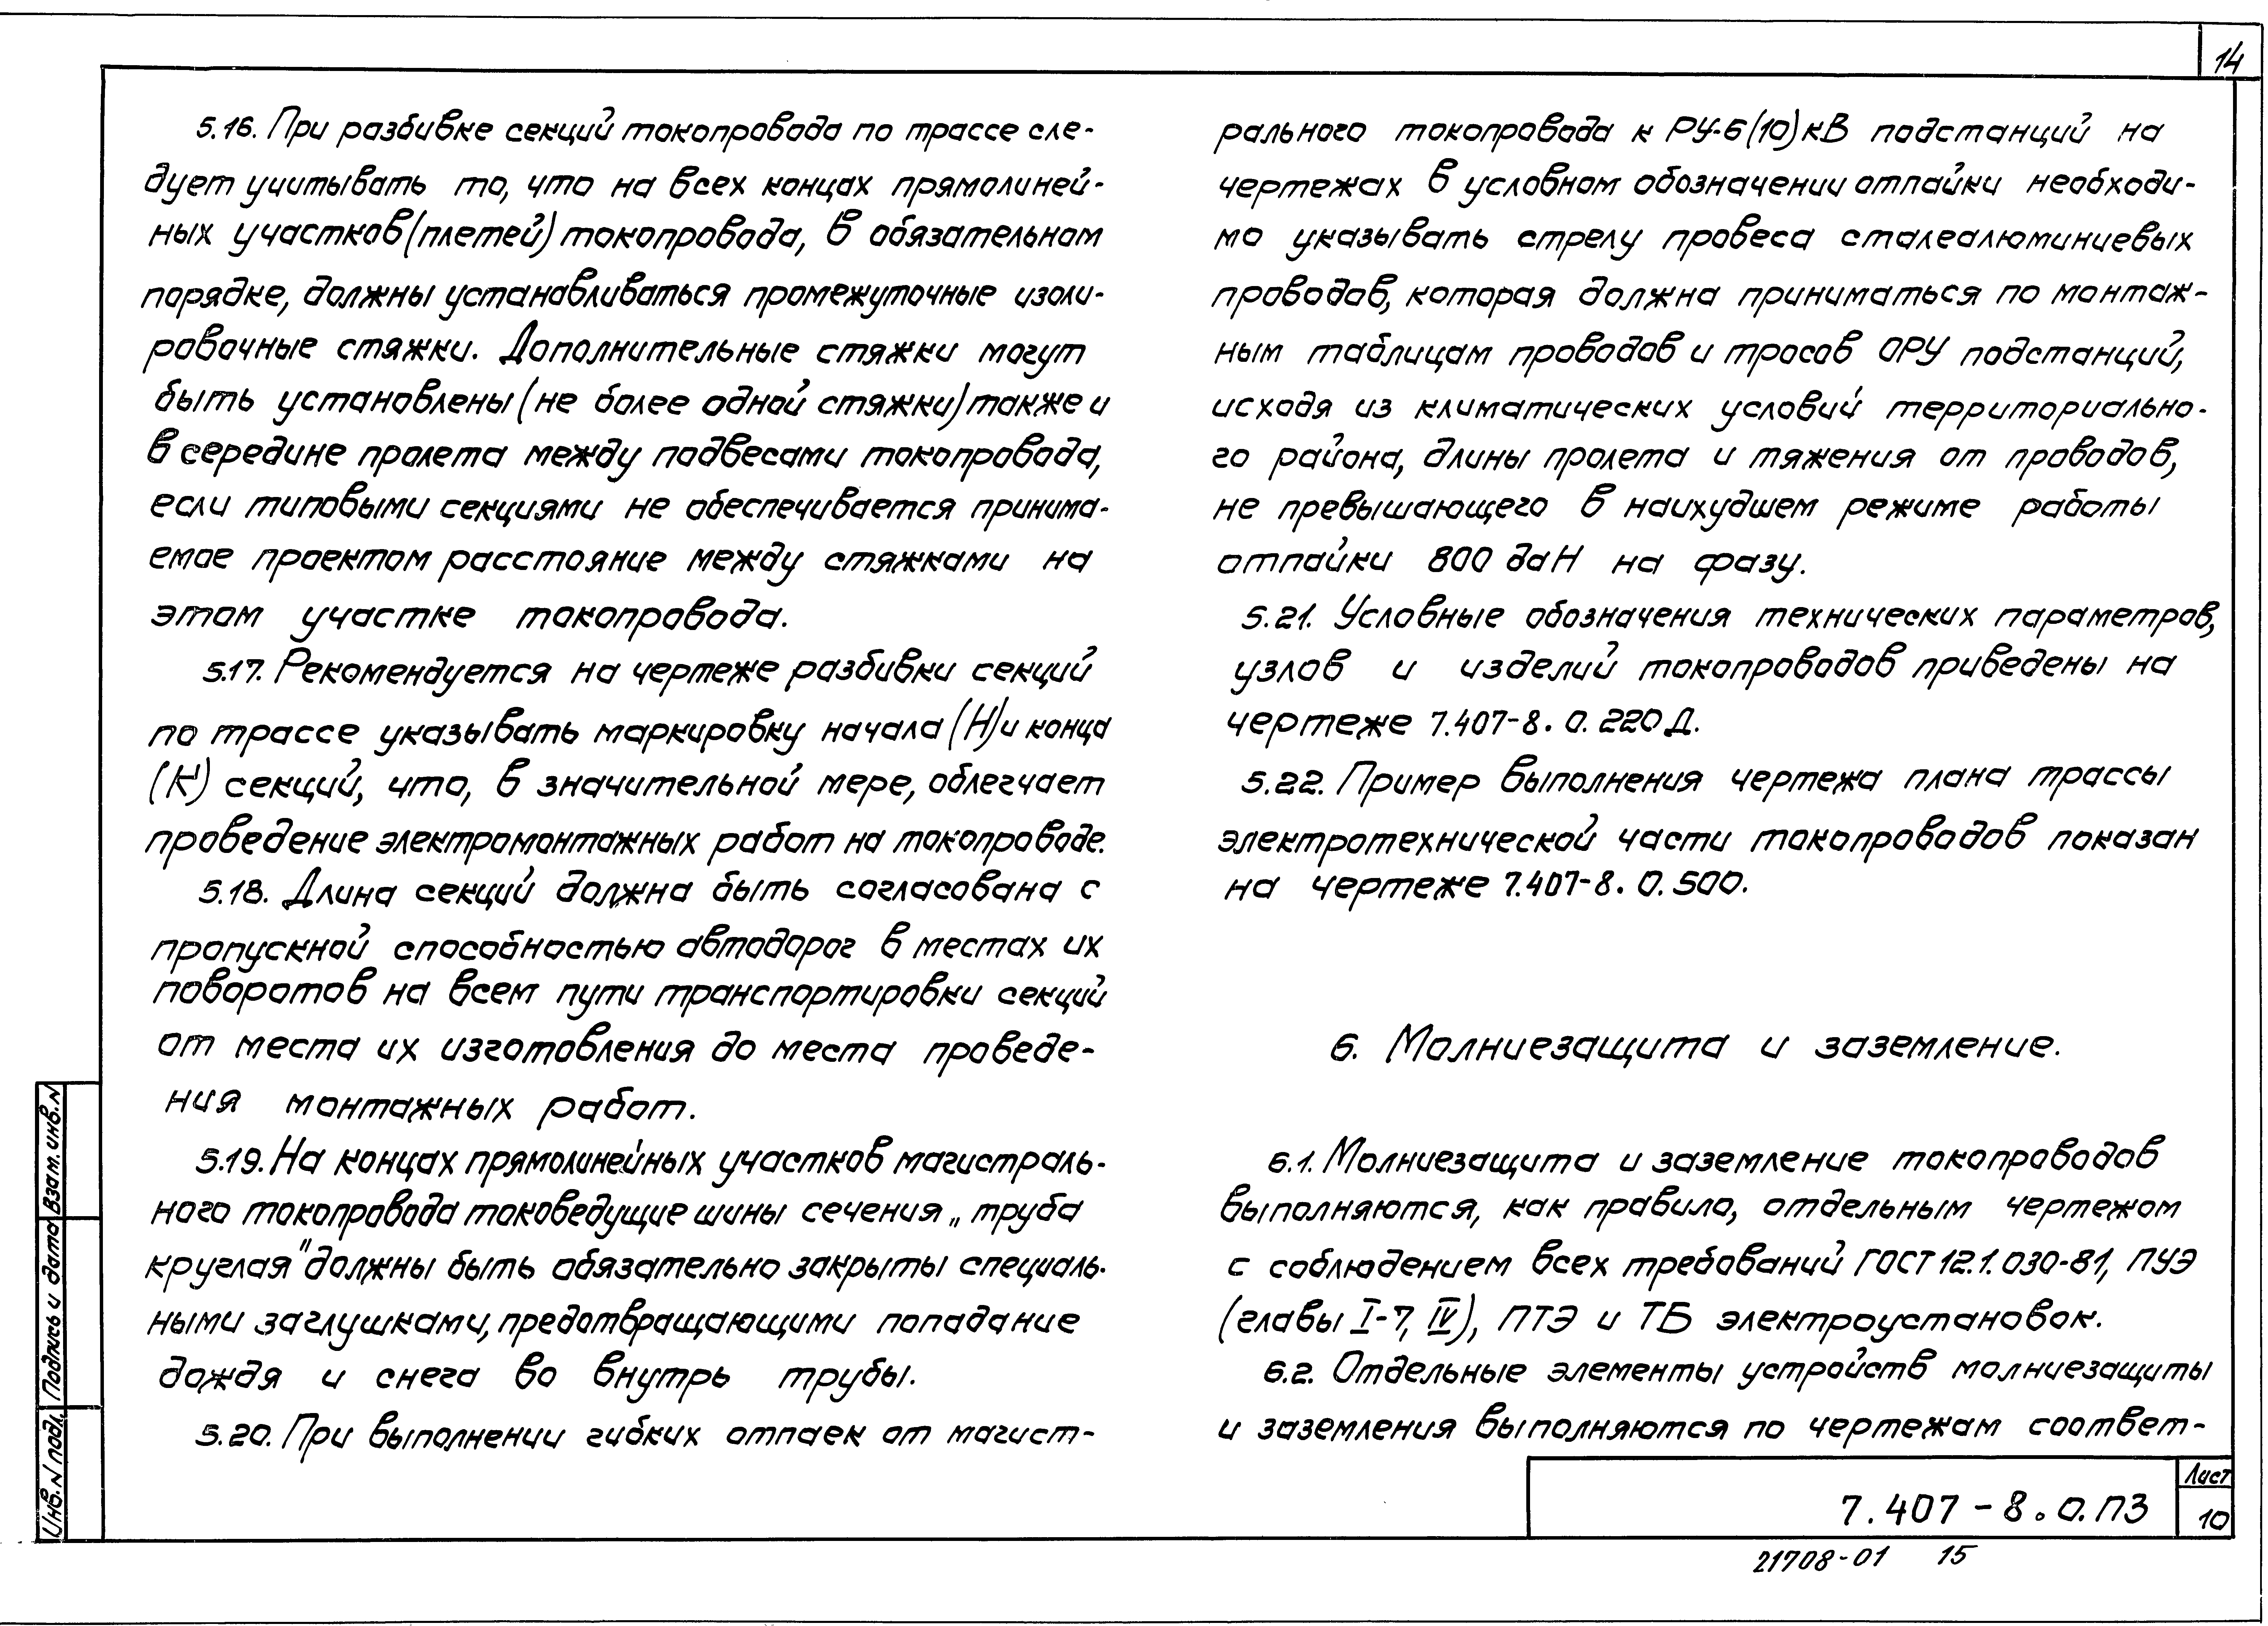 14
5.16. При разбивке секций токопровода по трассе сле-
дует учитывать то, что на всех концах прямолиней-
ных участков (плетей) токопровода, в обязательном
порядке, должны устанавливаться промежуточные изоли-
ровочные стяжки. Дополнительные стяжки могут
быть установлены (не более одной стяжки) также и
в середине пролета между подвесами токопровода,
если типовыми секциями не обеспечивается принима-
емое проектом расстояние между стяжками на
этом участке токопровода.
5.17. Рекомендуется на чертеже разбивки секций
по трассе указывать маркировку начала (Н) и конца
(К) секций, что, в значительной мере, облегчает
проведение электромонтажных работ на токопроводе.
5.18. Длина секций должна быть согласована с
пропускной способностью автодорог в местах их
поворотов на всем пути транспортировки секций
от места их изготовления до места проведе-
ния монтажных работ.
5.19. На концах прямолинейных участков магистраль-
ного токопровода токоведущие шины сечения „труба
круглая" должны быть обязательно закрыты специаль-
ными заглушками, предотвращающими попадание
дождя и снега во внутрь трубы.
5.20. При выполнении гибких отпаек от магист-
рального токопровода к РУ-6(10)кВ подстанций на
чертежах в условном обозначении отпайки необходи-
мо указывать стрелу провеса сталеалюминиевых
проводов, которая должна приниматься по монтаж-
ным таблицам проводов и тросов ОРУ подстанций,
исходя из климатических условий территориально-
го района, длины пролета и тяжения от проводов,
не превышающего в наихудшем режиме работы
отпайки 800 даН на фазу.
5.21. Условные обозначения технических параметров,
узлов и изделий токопроводов приведены на
чертеже 7.407-8.0.220Д.
5.22. Пример выполнения чертежа плана трассы
электротехнической части токопроводов показан
на чертеже 7.407-8.0.500.
6. Молниезащита и заземление.
6.1. Молниезащита и заземление токопроводов
выполняются, как правило, отдельным чертежом
с соблюдением всех требований ГОСТ 12.1.030-81, ПУЭ
(главы I-7, IV), ПТЭ и ТБ электроустановок.
6.2. Отдельные элементы устройств молниезащиты
и заземления выполняются по чертежам соответ-
Инв. N подл. Подпись и дата Взам. инв. N
7.407-8.0.ПЗ
Лист
10
21708-01 15